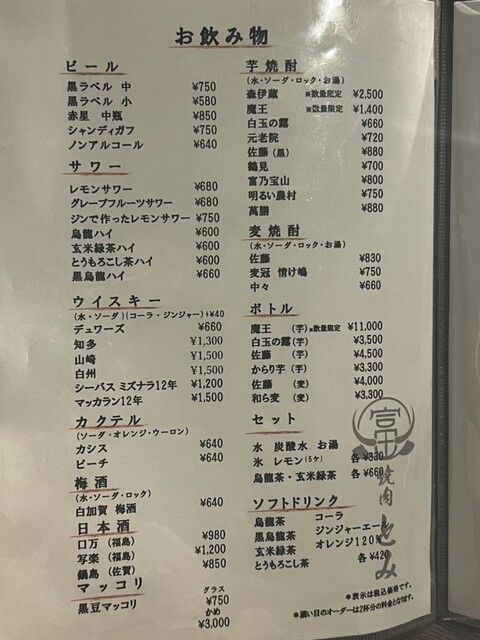 お飲み物
ビール
黒ラベル 中 ¥750
黒ラベル 小 ¥580
赤星 中瓶 ¥850
シャンディガフ ¥750
ノンアルコール ¥640
サワー
レモンサワー ¥680
グレープフルーツサワー ¥680
ジンで作ったレモンサワー ¥750
烏龍ハイ ¥600
玄米緑茶ハイ ¥600
とうもろこし茶ハイ ¥600
黒烏龍ハイ ¥660
ウイスキー
(水・ソーダ)(コーラ・ジンジャー)+¥40
デュワーズ ¥660
知多 ¥1,300
山崎 ¥1,500
白州 ¥1,500
シーバス ミズナラ12年 ¥1,200
マッカラン12年 ¥1,500
カクテル
(ソーダ・オレンジ・ウーロン)
カシス ¥640
ピーチ ¥640
梅酒
(水・ソーダ・ロック)
白加賀 梅酒 ¥640
日本酒
口万(福島) ¥980
写楽(福島) ¥1,200
鍋島(佐賀) ¥850
マッコリ
グラス
黒豆マッコリ ¥750
かめ
¥3,000
芋焼酎
(水・ソーダ・ロック・お湯)
森伊蔵 ※数量限定 ¥2,500
魔王 ※数量限定 ¥1,400
白玉の露 ¥660
元老院 ¥720
佐藤(黒) ¥880
鶴見 ¥700
富乃宝山 ¥800
明るい農村 ¥750
萬膳 ¥880
麦焼酎
(水・ソーダ・ロック・お湯)
佐藤 ¥830
麦冠 情け嶋 ¥750
中々 ¥660
ボトル
魔王 (芋)※数量限定 ¥11,000
白玉の露(芋) ¥3,500
佐藤 (芋) ¥4,500
からり芋(芋) ¥3,300
佐藤 (麦) ¥4,000
和ら麦 (麦) ¥3,300
セット
水 炭酸水 お湯
氷 レモン(5ケ) 各¥330
烏龍茶・玄米緑茶 各¥660
ソフトドリンク
烏龍茶 コーラ
黒烏龍茶 ジンジャーエール
玄米緑茶 オレンジ120%
とうもろこし茶 各¥420
富
焼肉 とみ
＊表示は税込価格です。
＊濃い目のオーダーは2杯分の料金となります。